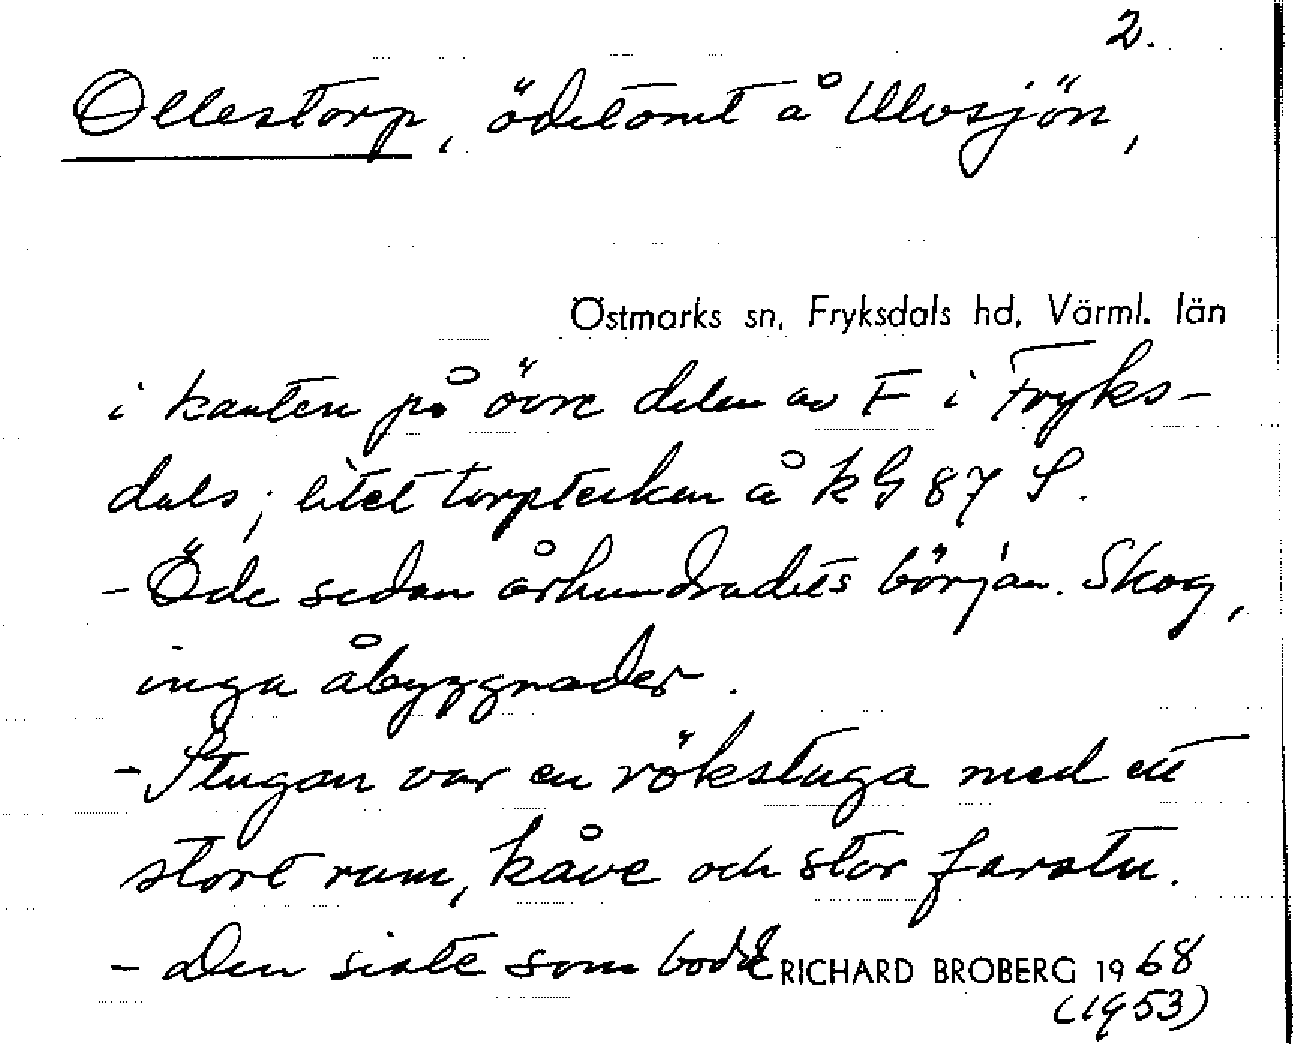 2.
Ollestorp, ödetomt å Ulvsjön,
Östmarks sn, Fryksdals hd, Värml. län
i kanten på övre delen av F i Fryks-
dals; litet torptecken å kG 87 S.
- Öde sedan århundradets början. Skog,
inga åbyggnader.
- Stugan var en rökstuga med ett
stort rum, kåve och stor farstu.
- Den siste som bodde RICHARD BROBERG 1968
(1953)